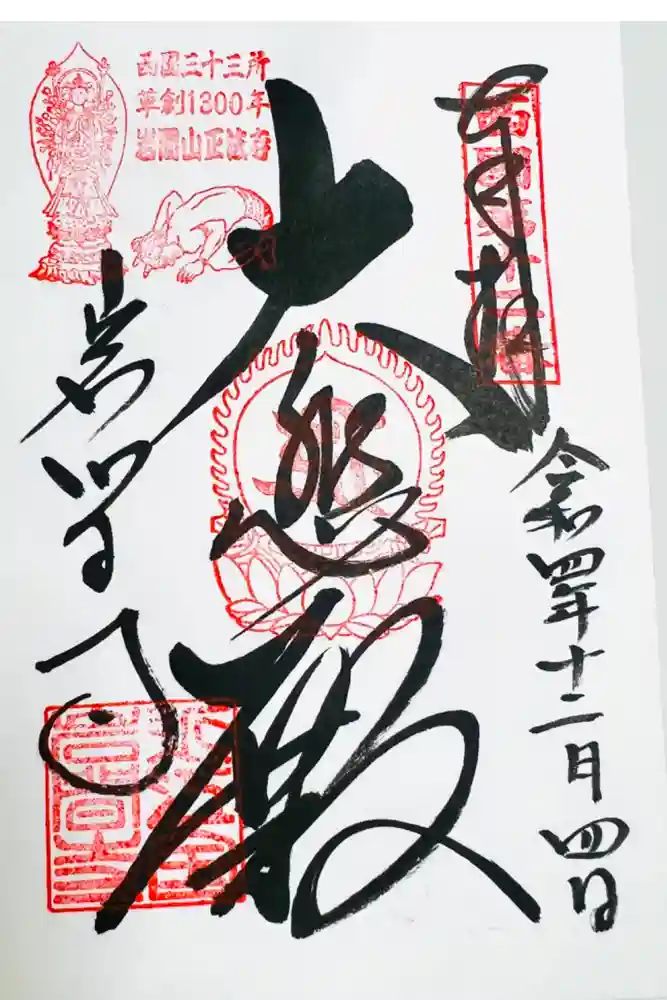 奉拝
西國第十二番
令和四年十二月四日
大悲殿
西国三十三所
草創1300年
岩間山正法寺
岩間寺